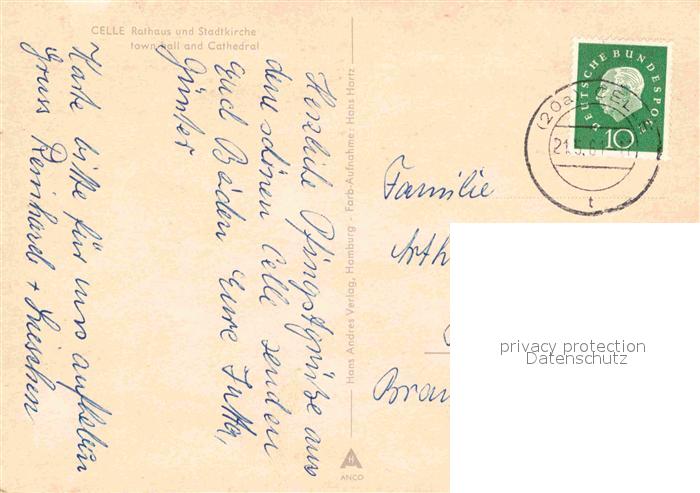 CELLE Rathaus und Stadtkirche
town hall and Cathedral
Herzliche Pfingstgrüße aus
dem schönen Celle senden
Euch Beiden Eure Jutta,
Günter
Karte bitte für uns aufheben
Gruss Reinhard + Lieschen
Hans Andres Verlag, Hamburg - Farb-Aufnahme: Hans Hartz
ANCO
DEUTSCHE BUNDESPOST
10
(20a) CELLE
21.5.61
t
Familie
Arth
Brau
privacy protection
Datenschutz